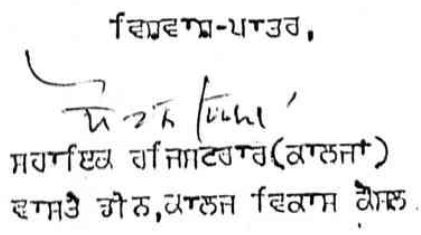 ਵਿਸ਼ਵਾਸ਼-ਪਾਤਰ,
ਸਹਾਇਕ ਰਜਿਸਟਰਾਰ(ਕਾਲਜਾਂ)
ਵਾਸਤੇ ਡੀਨ,ਕਾਲਜ ਵਿਕਾਸ ਕੌਂਸਲ